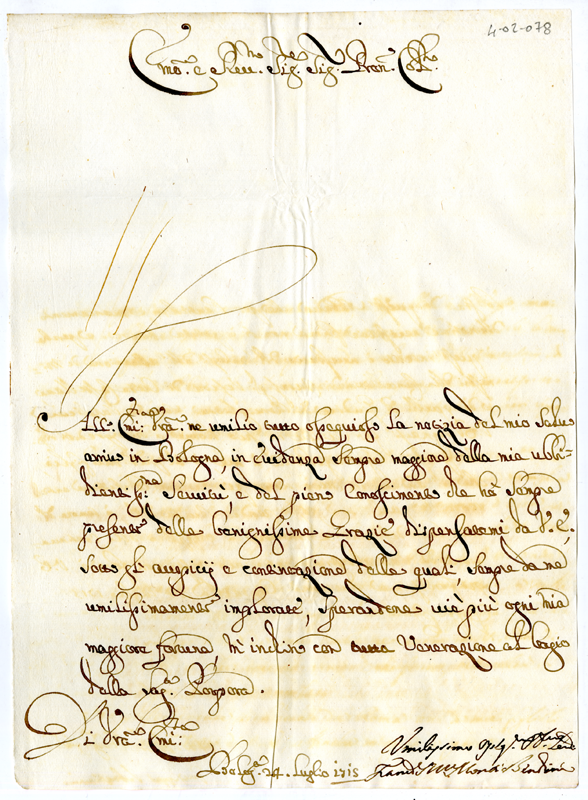 4-02-078
Emo. e Rev. Sig. Sig. Pron. Col.
All' Emi: Vra. ne umilio tutto ossequioso la notizia del mio salvo
arrivo in Bologna, in evidenza sempre maggiore della mia ubbi-
dientissma. Servitù, e del pieno conoscimento che hò sempre
presente delle benignissime Grazie dispensatemi da V. E,
sotto gl' auspicij e continuazione delle quali, sempre da me
umilissimamente implorate, sperandone viè più ogni mia
maggiore fortuna, m' inclino con tutta Venerazione al bagio
della Sag. Porpora.
Di Vra. Emi:
Umilissimo
Bolog. 24. Luglio 1715